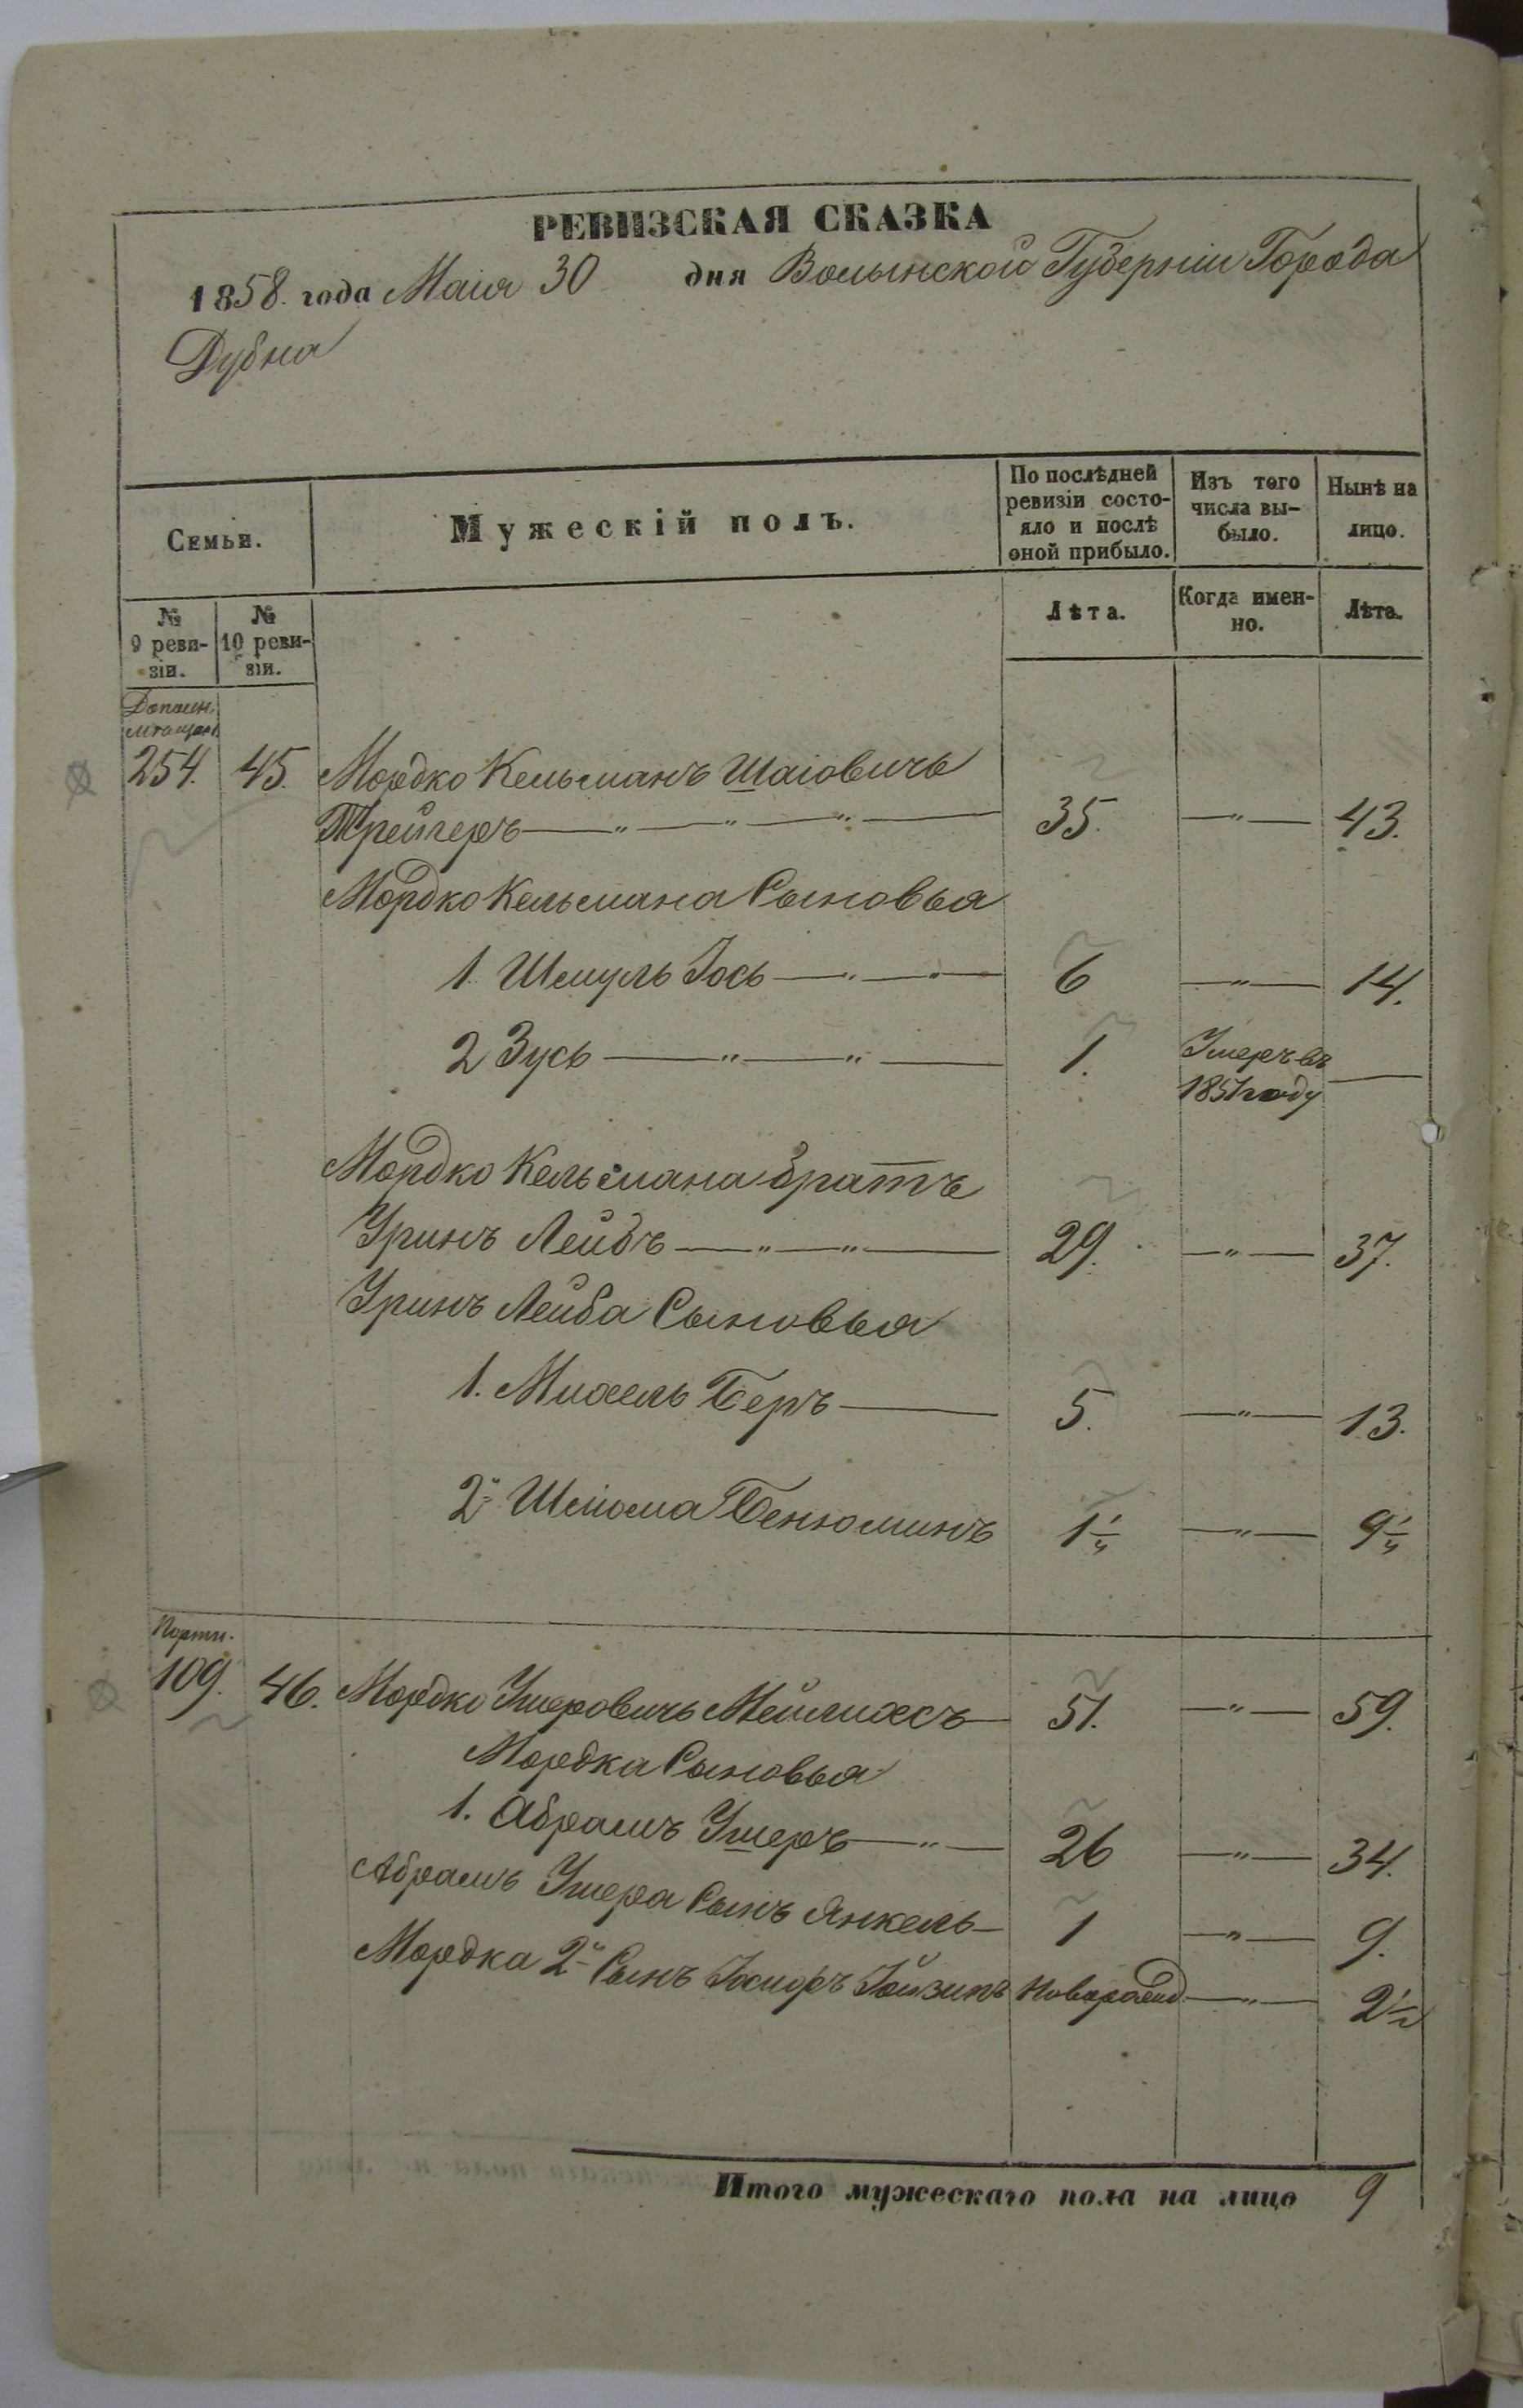 РЕВИЗСКАЯ СКАЗКА
1858. года Маія 30 дня Волынской Губерніи Города
Дубна
Семьи.
Мужескій полъ.
По послѣдней ревизіи состо-
яло и послѣ оной прибыло.
Изъ того числа вы-
было.
Нынѣ на лицо.
№ 9 реви-
зіи.
№ 10 реви-
зіи.
Лѣта.
Когда имен-
но.
Лѣта.
254. 45. Мордко Кельманъ Шаіовичь
Трейгеръ — " — " — " — 35. — " — 43.
Мордко Кельмана Сыновья
1. Шмуль Іось — " — " — 6 — " — 14.
2 Зусь — " — " — 1. Умеръ въ
1851 году —
Мордко Кельмана братъ
Уринъ Лейбъ — " — " — 29. — " — 37.
Уринъ Лейба Сыновья
1. Михель Беръ — 5. — " — 13.
2й Шліома Бенюминъ 1¼ — " — 9¼
109. 46. Мордко Ушеровичь Мейлихсъ — 51. — " — 59.
Мордка Сыновья
1. Абрамъ Ушеръ — " — 26 — " — 34.
Абрамъ Ушера Сынъ Янкель — 1 — " — 9.
Мордка 2й Сынъ Іосифъ Іойзипъ новорожд. — " — 2½
Итого мужескаго пола на лицо 9